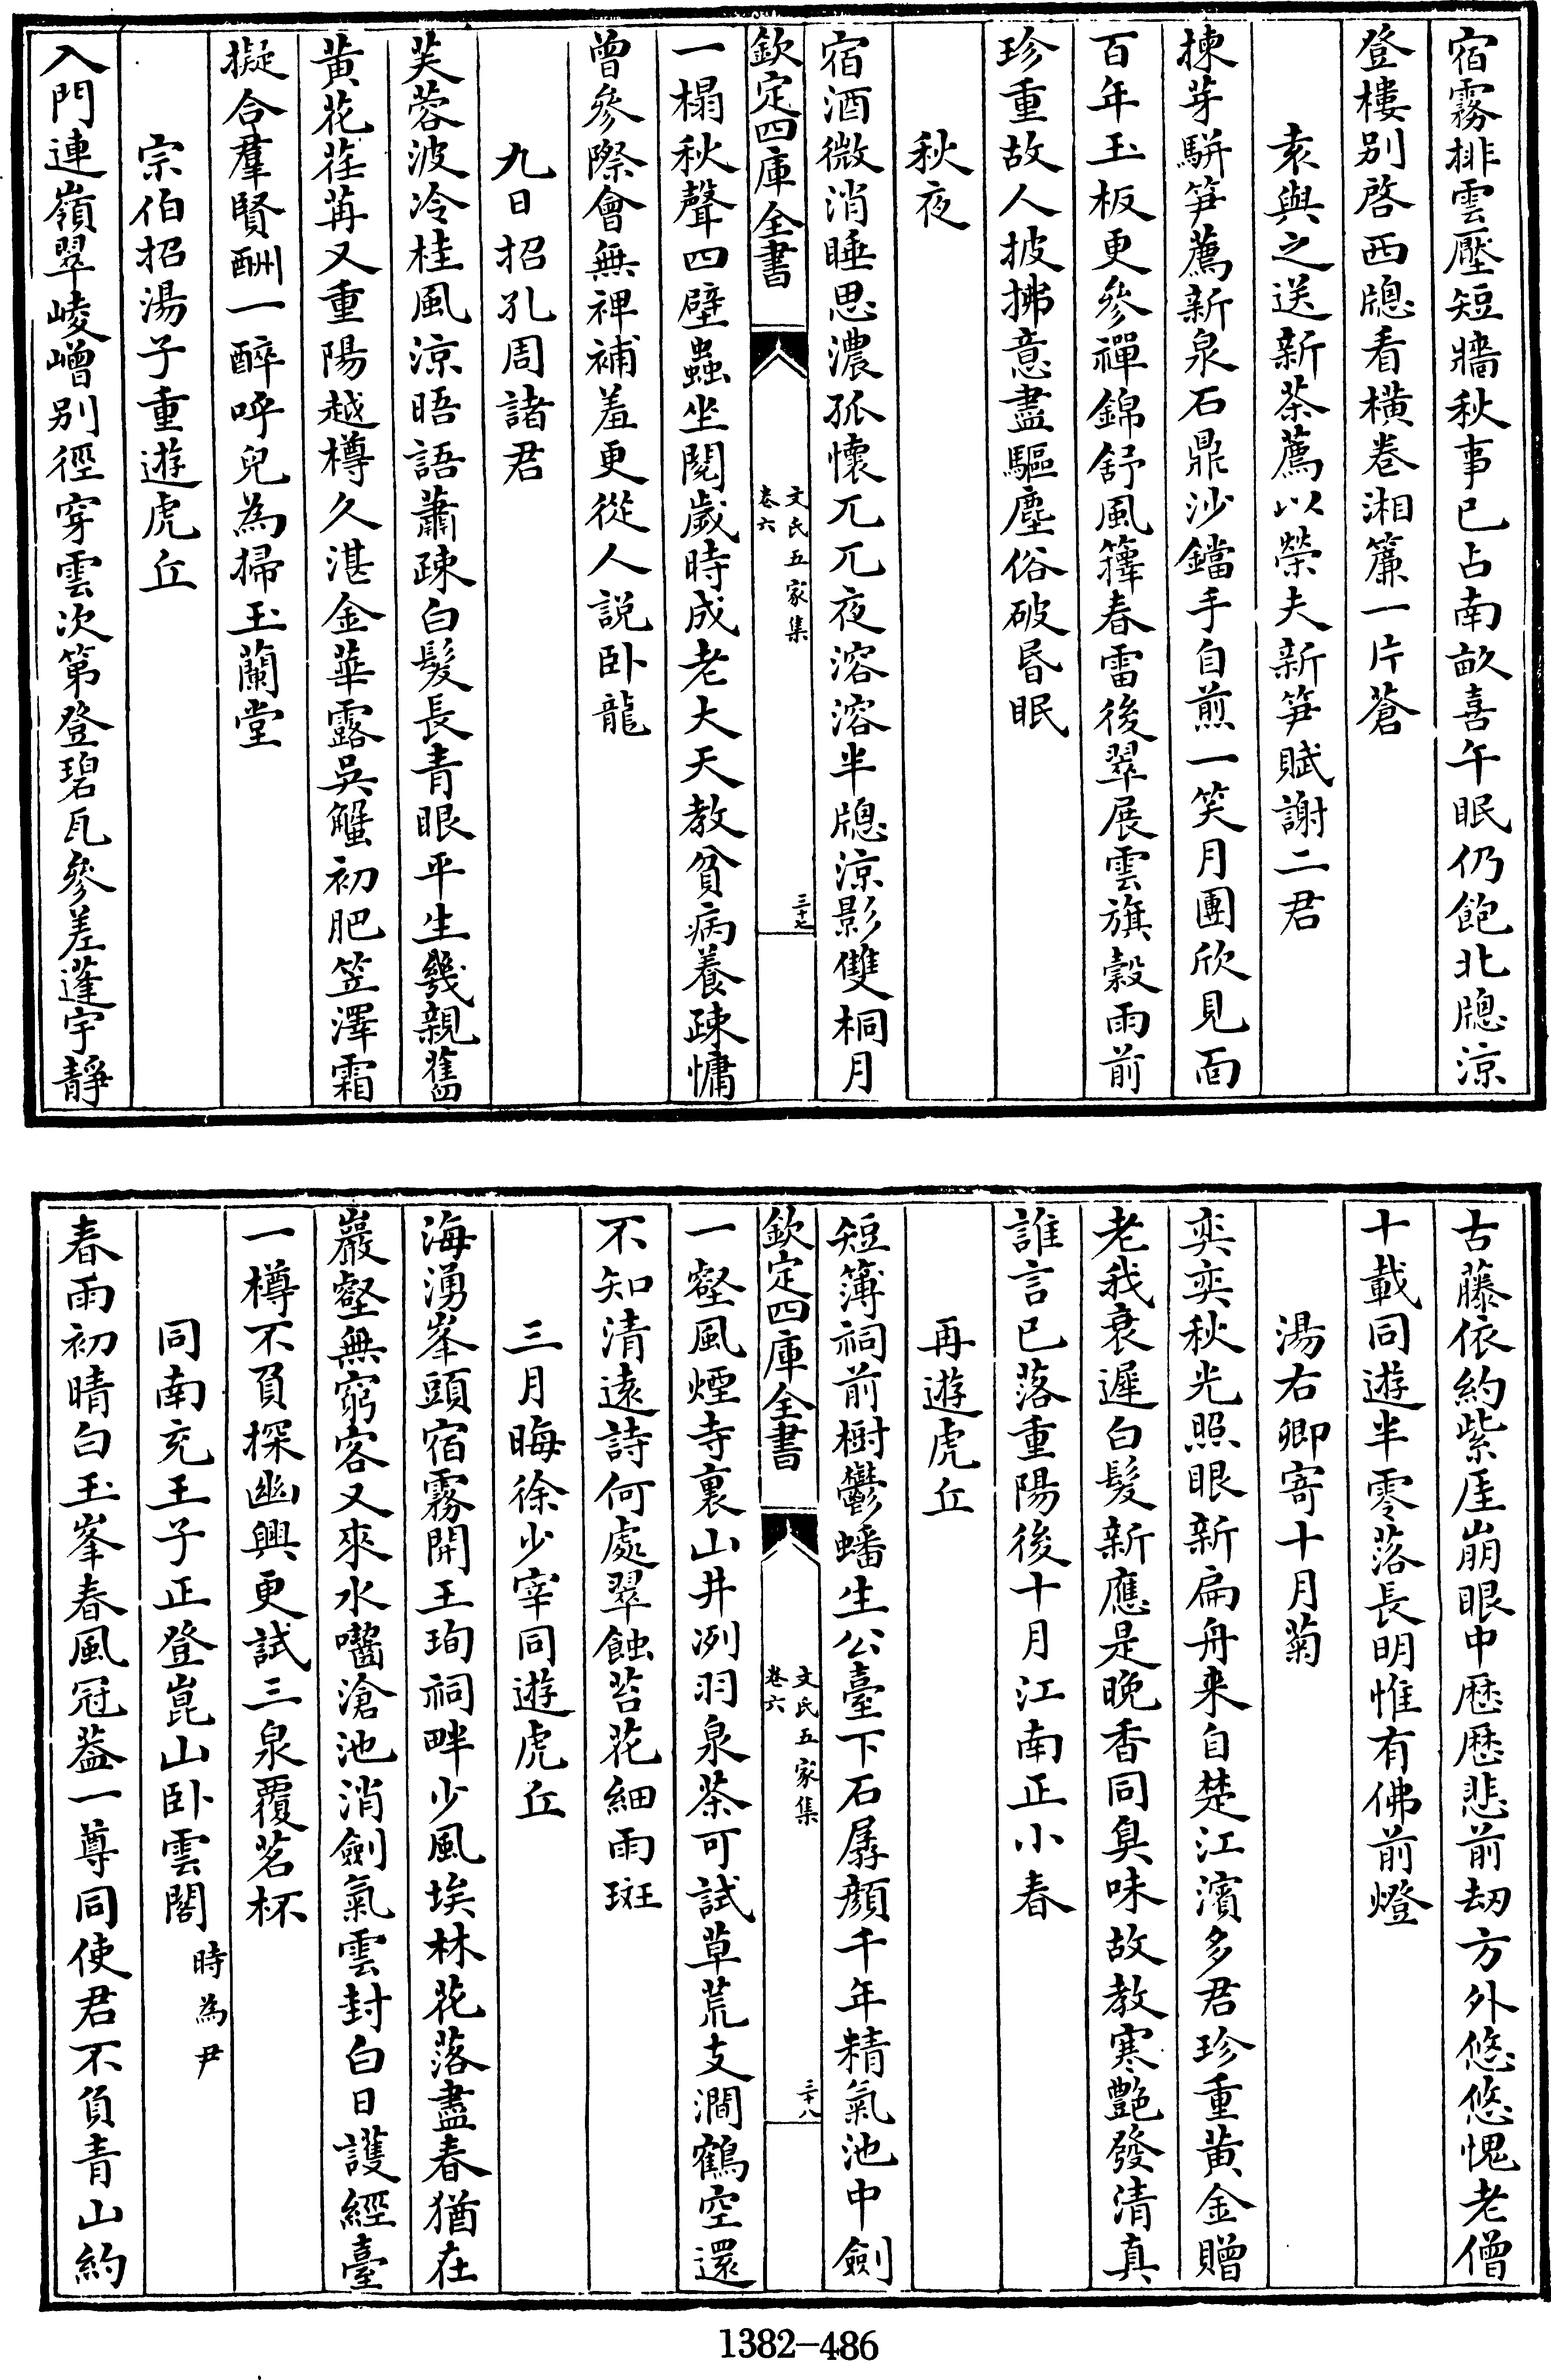 宿霧排雲壓短牆秋事已占南畝喜午眠仍飽北牕涼
登樓别啓西牕看橫卷湘簾一片蒼
袁與之送新茶薦以榮夫新笋賦謝二君
揀芽駢笋薦新泉石鼎沙鐺手自煎一笑月團欣見面
百年玉板更參禪錦舒風籜春雷後翠展雲旗穀雨前
珍重故人披拂意盡驅塵俗破昬眠
秋夜
宿酒微消睡思濃孤懷兀兀夜溶溶半牕涼影雙桐月
欽定四庫全書
文氏五家集
卷六
三十七
一榻秋聲四壁蟲坐閱歲時成老大天教貧病養疎慵
曾參際會無裨補羞更從人説卧龍
九日招孔周諸君
芙蓉波冷桂風涼晤語蕭疎白髮長青眼平生幾親舊
黃花荏苒又重陽越樽久湛金華露吳蟹初肥笠澤霜
擬合羣賢酬一醉呼兒為掃玉蘭堂
宗伯招湯子重遊虎丘
入門連嶺翠崚嶒别徑穿雲次第登碧瓦參差蓬宇靜
古藤依約紫厓崩眼中歷歷悲前刼方外悠悠愧老僧
十載同遊半零落長明惟有佛前燈
湯右卿寄十月菊
奕奕秋光照眼新扁舟来自楚江濱多君珍重黃金贈
老我衰遲白髮新應是晚香同臭味故教寒艷發清真
誰言已落重陽後十月江南正小春
再遊虎丘
短簿祠前樹鬱蟠生公臺下石孱顔千年精氣池中劍
欽定四庫全書
文氏五家集
卷六
三十八
一壑風煙寺裏山井冽羽泉茶可試草荒支澗鶴空還
不知清遠詩何處翠蝕苔花細雨斑
三月晦徐少宰同遊虎丘
海湧峯頭宿霧開王珣祠畔少風埃林花落盡春猶在
巖壑無窮客又來水嚙滄池消劍氣雲封白日護經臺
一樽不負探幽興更試三泉覆茗杯
同南充王子正登崑山卧雲閣時為尹
春雨初晴白玉峯春風冠蓋一尊同使君不負青山約
1382-486